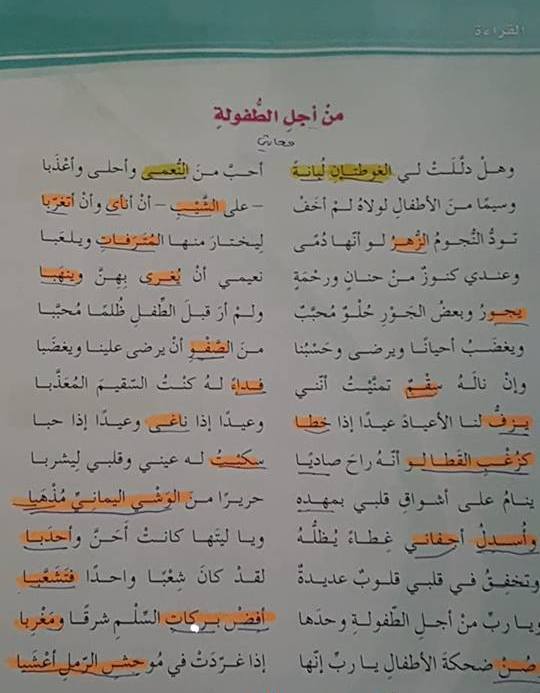 القراءة
منْ أجلِ الطُّفولةِ
وهلْ دلَّلَتْ لي الغوطتانِ لُبانةً أحبَّ منَ النُّعمى وأحلى وأعْذَبا
وسيمًا منَ الأطفالِ لولاهُ لمْ أخَفْ - على الشَّيْبِ - أنْ أنأى وأنْ أتغرَّبا
تودُّ النُّجومُ الزُّهرُ لو أنّها دُمًى ليختارَ منها المُتْرَفاتِ ويلعَبا
وعندي كنوزٌ منْ حنانٍ ورحْمَةٍ نعيمي أنْ يُغرى بِهِنَّ وينهَبا
يجورُ وبعضُ الجَوْرِ حُلْوٌ مُحبَّبٌ ولمْ أرَ قبلَ الطِّفلِ ظُلمًا مُحبَّبا
ويغضَبُ أحيانًا ويرضى وحَسْبُنا منَ الصَّفْوِ أنْ يرضى علينا ويغضَبا
وإنْ نالَهُ سقْمٌ تمنَّيْتُ أنّني فداءً لهُ كنْتُ السَّقيمَ المُعَذَّبا
يزفُّ لنا الأعيادَ عيدًا إذا خطا وعيدًا إذا ناغى وعيدًا إذا حبا
كزُغْبِ القَطا لو أنّهُ راحَ صاديًا سكبْتُ له عيني وقلبي لِيشربا
ينامُ على أشواقِ قلبي بمهدِهِ حريرًا منَ الوَشْيِ اليمانيِّ مُذْهبا
وأُسدِلُ أجفاني غِطاءً يُظلُّهُ ويا ليتَها كانتْ أحَنَّ وأحدَبا
وتخفِقُ في قلبي قلوبٌ عديدةٌ لقدْ كانَ شِعْبًا واحدًا فتَشَعَّبا
ويا ربِّ منْ أجلِ الطّفولةِ وحدَها أفِضْ بركاتِ السِّلْمِ شرقًا ومَغْرِبا
وصُنْ ضحكةَ الأطفالِ يا ربِّ إنّها إذا غرّدَتْ في مُوحِشِ الرّملِ أعْشَبا